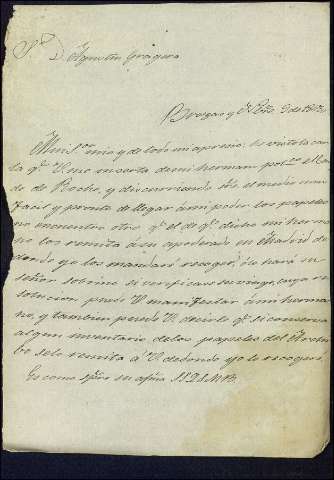 Sr. D. Agustin Grajera
Brozas y En.o 9 de
Muy Sor. mio y de todo mi aprecio: he visto la car
ta qe. V. me inserta de mi hermano pol.co el Con
de de Roche, y discurriendo el medio mas
facil y pronto de llegar á mi poder los papeles
no encuentro otro qe. el de qe. dicho mi herma
no los remita á su apoderado en Madrid de
donde yo los mandaré recoger; ó lo hará su
señor sobrino si verifica su viage, cuya re
solucion puede V. manifestar á mi herma
no, y tambien puede V. decirle qe. si conserva
algun inventario de los papeles del Archi
bo se lo remita á V. de donde yo lo recogeré.
Es como spre. su afmo. S. S. Q. S. M. B.